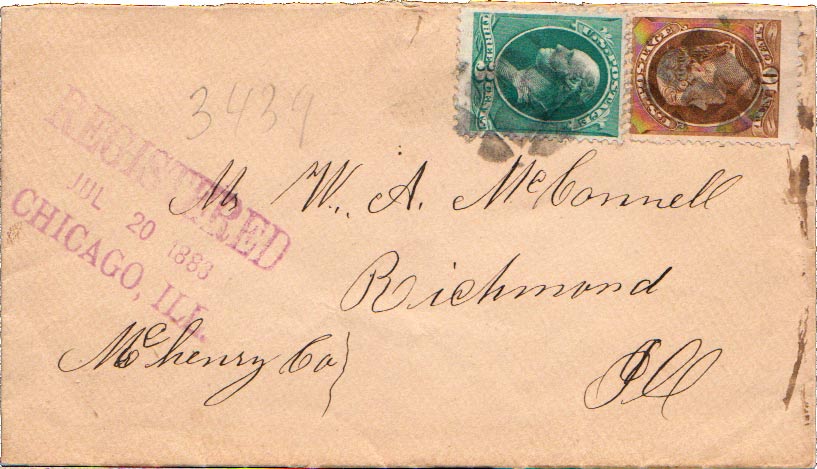 3439
REGISTERED
JUL 20 1883
CHICAGO, ILL.
Mr W. A. McConnell
Richmond
McHenry Co
Ill
U.S. POSTAGE
THREE 3 CENTS
U.S. POSTAGE